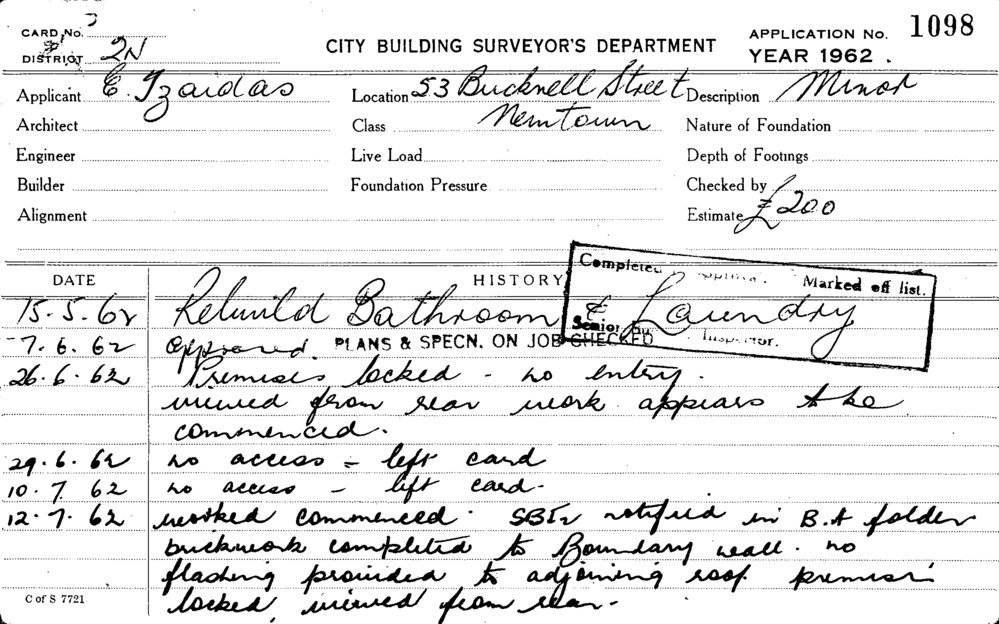 CARD No.
DISTRICT 2N
CITY BUILDING SURVEYOR'S DEPARTMENT
APPLICATION No. 1098
YEAR 1962.
Applicant E. Tzaidas
Location 53 Bucknell Street
Description Minor
Architect
Class Newtown
Nature of Foundation
Engineer
Live Load
Depth of Footings
Builder
Foundation Pressure
Checked by
Alignment
Estimate £200
DATE HISTORY
Completed Marked off list.
Senior Inspector.
15.5.62 Rebuild Bathroom & Laundry
7.6.62 approved. PLANS & SPECN. ON JOB CHECKED
26.6.62 Premises locked - no entry.
viewed from rear work appears to be
commenced.
29.6.62 no access - left card
10.7.62 no access - left card.
12.7.62 worked commenced. SBIs notified in B.A folder
brickwork completed to Boundary wall. no
flashing provided to adjoining roof. premises
locked, viewed from rear.
C of S 7721